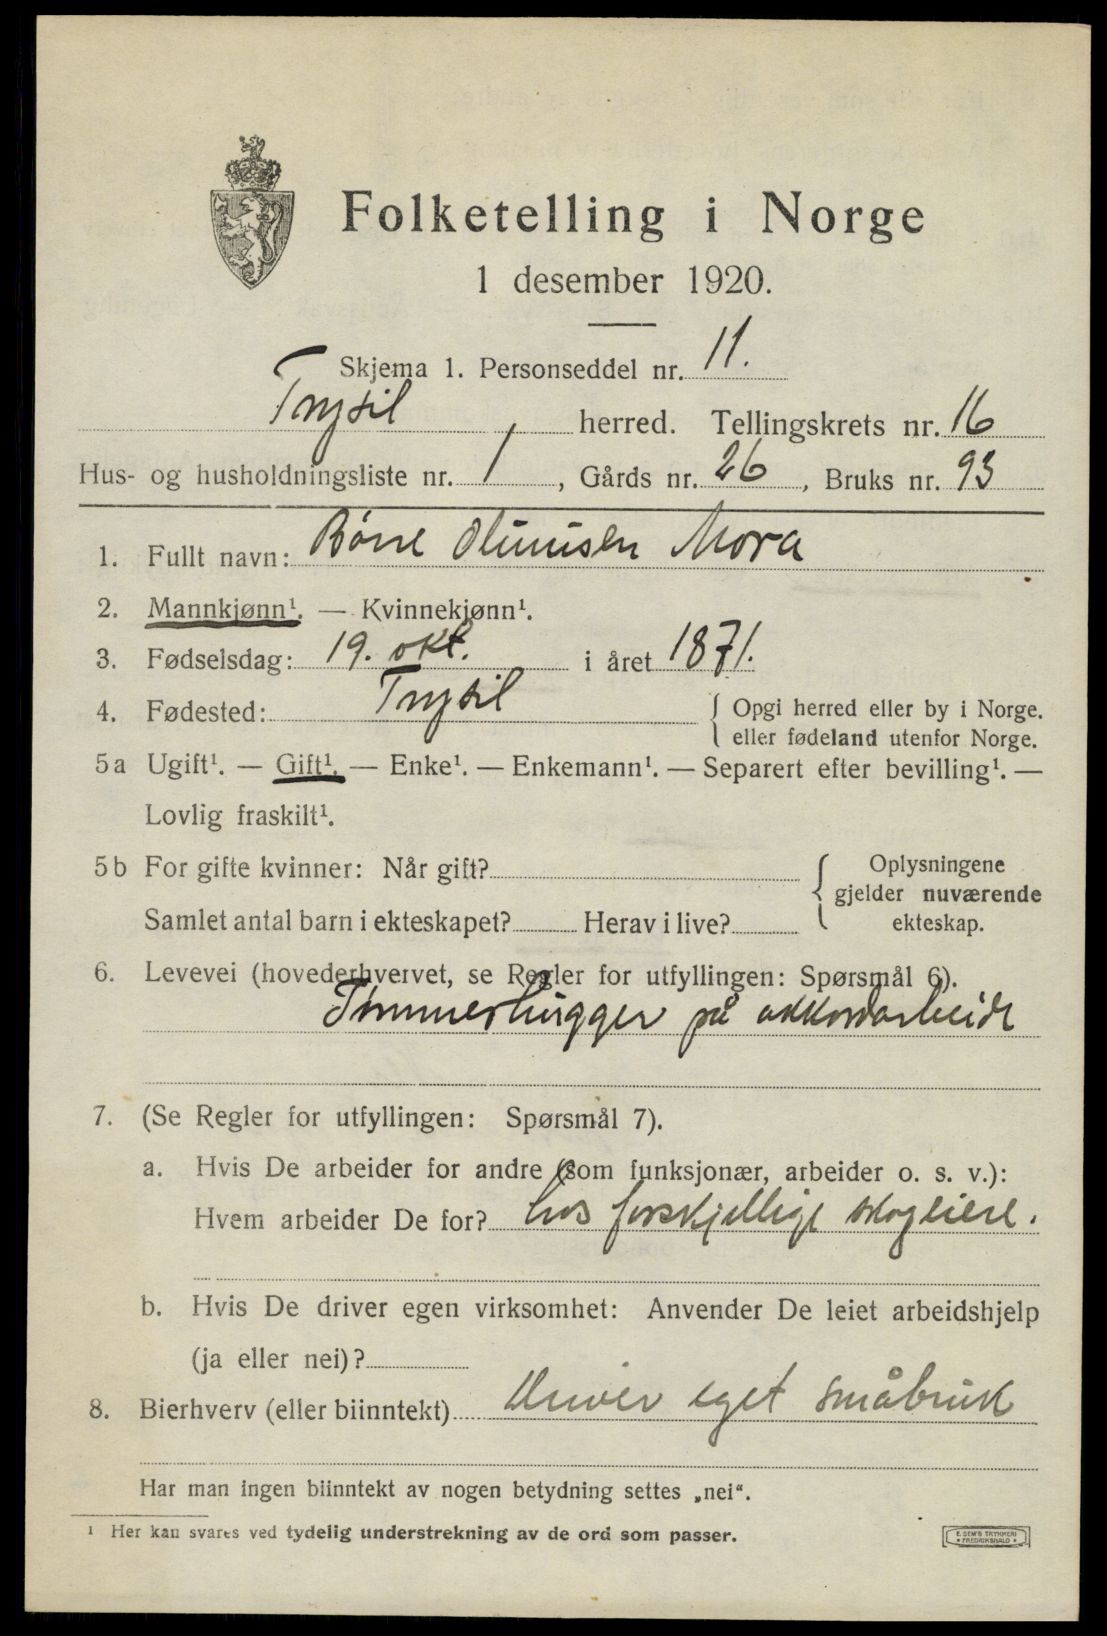 Folketelling i Norge
1 desember 1920.
Skjema 1. Personseddel nr. 11.
Trysil herred. Tellingskrets nr. 16
Hus- og husholdningsliste nr. 1, Gårds nr. 26, Bruks nr. 93
1. Fullt navn: Børre Olunisen Mora
2. Mannkjønn¹. — Kvinnekjønn¹.
3. Fødselsdag: 19. okt. i året 1871.
4. Fødested: Trysil { Opgi herred eller by i Norge.
eller fødeland utenfor Norge.
5a Ugift¹. — Gift¹. — Enke¹. — Enkemann¹. — Separert efter bevilling¹. —
Lovlig fraskilt¹.
5b For gifte kvinner: Når gift? { Oplysningene
gjelder nuværende
Samlet antal barn i ekteskapet? Herav i live? ekteskap.
6. Levevei (hovederhvervet, se Regler for utfyllingen: Spørsmål 6).
Tømmerhugger på akkordarbeide
7. (Se Regler for utfyllingen: Spørsmål 7).
a. Hvis De arbeider for andre (som funksjonær, arbeider o. s. v.):
Hvem arbeider De for? hos forskjellige skogeiere.
b. Hvis De driver egen virksomhet: Anvender De leiet arbeidshjelp
(ja eller nei)?
8. Bierhverv (eller biinntekt) Driver eget småbruk
Har man ingen biinntekt av nogen betydning settes „nei“.
¹ Her kan svares ved tydelig understrekning av de ord som passer.
E. SEM'S TRYKKERI
FREDRIKSHALD